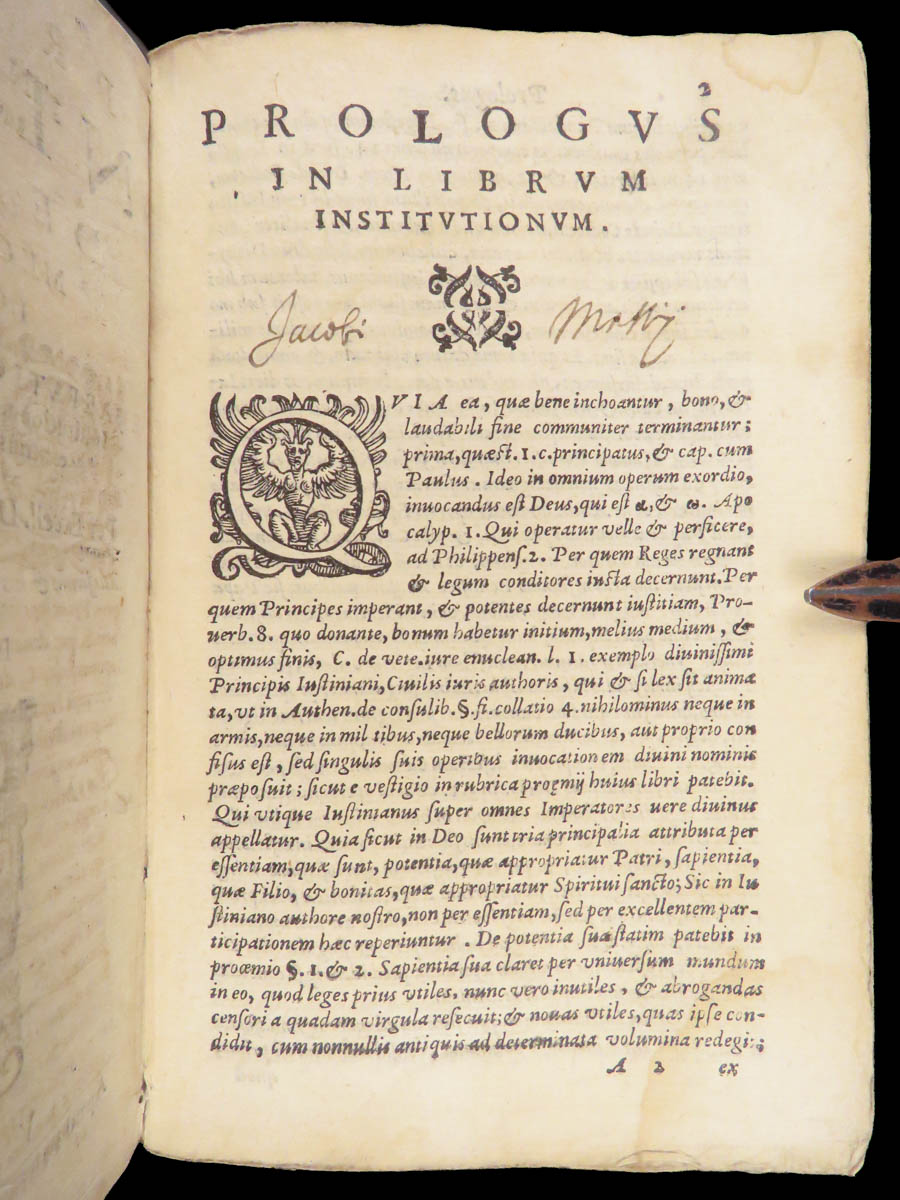 2
PROLOGVS
IN LIBRVM
INSTITVTIONVM.
Jacobi
QVIA ea, quæ bene inchoantur, bono, &
laudabili fine communiter terminantur;
prima, quæst. 1. c. principatus, & cap. cum
Paulus. Ideo in omnium operum exordio,
inuocandus est Deus, qui est α, & ω. Apo
calyp. 1. Qui operatur velle & perficere,
ad Philippens. 2. Per quem Reges regnant
& legum conditores iusta decernunt. Per
quem Principes imperant, & potentes decernunt iustitiam, Pro-
uerb. 8. quo donante, bonum habetur initium, melius medium, &
optimus finis, C. de vete. iure enuclean. l. 1. exemplo diuinissimi
Principis Iustiniani, Ciuilis iuris authoris, qui & si lex sit anima
ta, vt in Authen. de consulib. §. fi. collatio 4. nihilominus neque in
armis, neque in mil tibus, neque bellorum ducibus, aut proprio con
fisus est, sed singulis suis operibus inuocationem diuini nominis
præposuit; sicut e vestigio in rubrica proemij huius libri patebit.
Qui vtique Iustinianus super omnes Imperatores uere diuinus
appellatur. Quia sicut in Deo sunt tria principalia attributa per
essentiam, quæ sunt, potentia, quæ appropriatur Patri, sapientia,
quæ Filio, & bonitas, quæ appropriatur Spiritui sancto; Sic in Iu
stiniano authore nostro, non per essentiam, sed per excellentem par-
ticipationem hæc reperiuntur. De potentia sua statim patebit in
proœmio §. 1. & 2. Sapientia sua claret per vniuersum mundum
in eo, quod leges prius vtiles, nunc vero inutiles, & abrogandas
censoria quadam virgula resecuit; & nouas vtiles, quas ipse con-
didit, cum nonnullis antiquis ad determinata volumina redegit;
A 2 ex